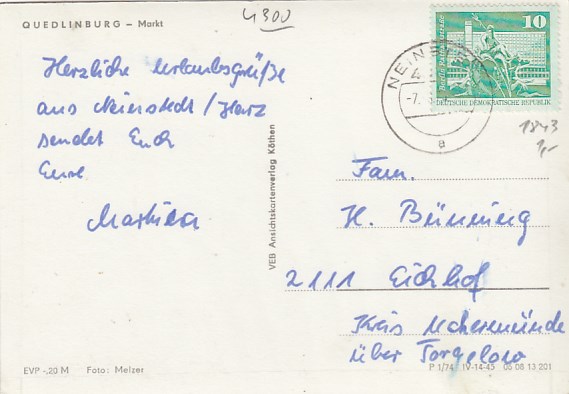 4300
QUEDLINBURG – Markt
Herzliche Urlaubsgrüße
aus Neinstedt / Harz
sendet Euch
Eure
Martina
10
DEUTSCHE DEMOKRATISCHE REPUBLIK
NEINST
-7.
a
1843
1,-
VEB Ansichtskartenverlag Köthen
Fam.
H. Bünning
2111 Eichhof
Kreis Uckermünde
über Torgelow
EVP -,20 M Foto: Melzer
P 1/74 IV-14-45 05 08 13 201